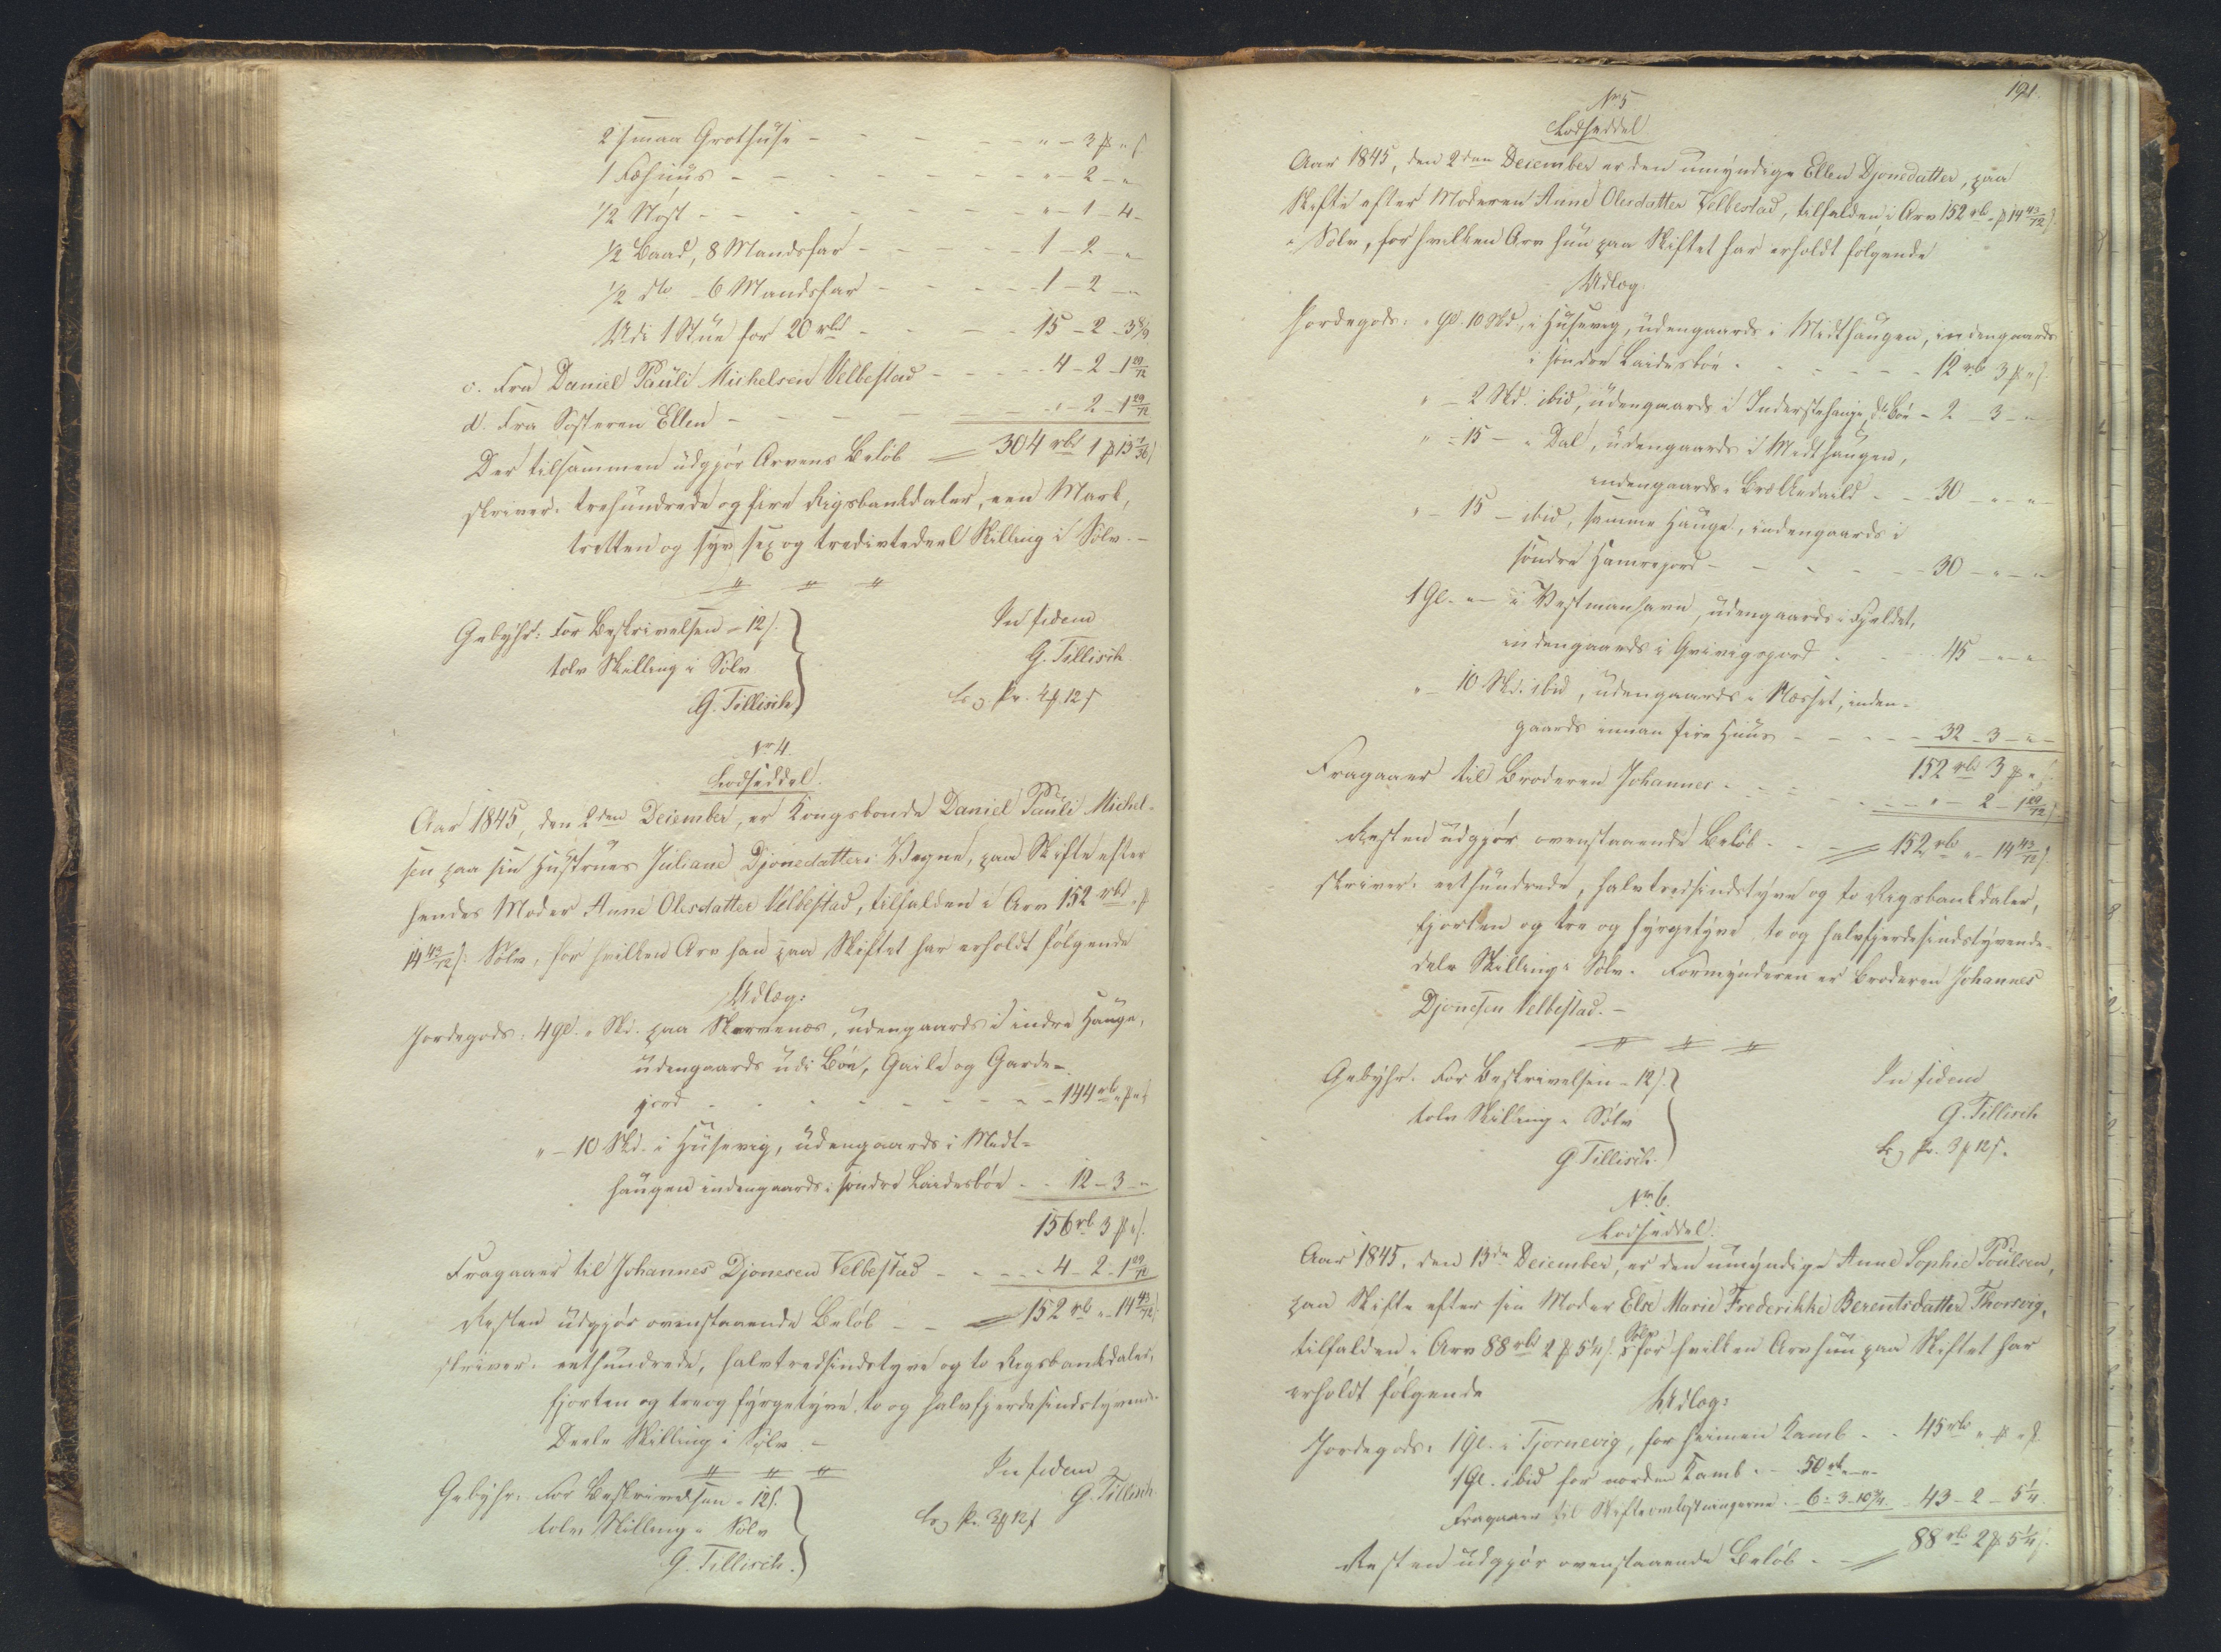 2 smaa Grothuse - - - - " - 3 ß " s
1 Fæhuus - - - - - - - - " - 2 - "
1/2 Nøst - - - - - - - " - 1 - 4 -
1/2 Baad, 8 Mandsfar - - - - - 1 - 2 - "
1/2 dto - 6 Mandsfar - - - - - 1 - 2 - "
Udi 1 Stue for 20 rbd - - - - 15 - 2 - 3 8/9
c. Fra Daniel Pauli Michelsen Velbestad - - - - - 4 - 2 - 1 29/72
d. Fra Søsteren Ellen - - - - - - " - 2 - 1 29/72
Der tilsammen udgjør Arvens Beløb = 304 rbd 1 ß 13 7/36 s
skriver: trehundrede og fire Rigsbankdaler, een Mark,
tretten og syv sex og tredivtedeel Skilling i Sølv. -
Gebyhr: For Beskrivelsen - 12 s.
tolv Skilling i Sølv
G. Tillisch
In fidem
G. Tillisch
No 4.
Lodseddel.
Aar 1845, den 2den December, er Kongsbonde Daniel Pauli Michel-
sen paa sin Hustrues Juliane Djonedatters Vegne, paa Skifte efter
hendes Moder Anne Olesdatter Velbestad, tilfalden i Arv 152 rbd " ß
14 43/72 s: Sølv, for hvilken Arv han paa Skiftet har erholdt følgende
Udlæg:
Jordegods: 4 Gl. " Sk. paa Skarvenæs, udengaards i indre Hauge,
udengaards udi Bøe, Gaile og Garde-
jord - - - - - - - - 144 rb " ß " s
" - 10 Sk. i Husevig, udengaards i Midt-
haugen indengaards i søndre Laidesbøe - - 12 - 3 - "
156 rb 3 ß " s.
Fragaaer til Johannes Djonesen Velbestad - - - - 4 - 2 - 1 29/72
Resten udgjør ovenstaaende Beløb - - = 152 rb " - 14 43/72 s
skriver: eethundrede, halvtredsindstyve og to Rigsbankdaler,
fjorten og tre og fyrgetyve to og halvfjerdesindstyvende-
Deele Skilling i Sølv. -
Gebyhr: For Beskrivelsen - 12 s.
tolv Skilling i Sølv
G. Tillisch.
In fidem
G. Tillisch
191.
No 5
Lodseddel
Aar 1845, den 2den December er den umyndige Ellen Djonedatter, paa
Skifte efter Moderen Anne Olesdatter Velbestad, tilfalden i Arv 152 rb " ß 14 43/72 s
i Sølv, for hvilken Arv hun paa Skiftet har erholdt følgende
Udlæg:
Jordegods: " Gl. 10 Sk., i Husevig, udengaards i Midthaugen, indengaards
i søndre Laidesbøe - - - - - - 12 rb 3 ß " s
" - 2 Sk. ibid, udengaards i Inderstehauge, do Bøe - 2 - 3 - "
" - 15 - i Dal, udengaards i Midthaugen,
indengaards i Brekkedaild - - 30 - " - "
" - 15 - ibid, samme Hauge, indengaards i
søndre Hamrejord - - - - - - 30 - " - "
1 Gl. " - i Vestmanhavn, udengaards i Fjeldet,
indengaards i Grivigsgjord - - - 45 - " - "
" - 10 Sk. ibid, udengaards i Næsset, inden-
gaards innan fire Huus - - - - 32 - 3 - " -
152 rbd 3 ß " s
Fragaaer til Broderen Johannes - - - - - - " - 2 - 1 29/72 s
Resten udgjør ovenstaaende Beløb - - = 152 rb " - 14 43/72 s.
skriver: eethundrede, halvtredsindstyve og to Rigsbankdaler,
fjorten og tre og fyrgetyve to og halvfjerdesindstyvende-
dele Skilling i Sølv. Formynderen er Broderen Johannes
Djonesen Velbestad. -
Gebyhr: For Beskrivelsen - 12 s.
tolv Skilling i Sølv
G. Tillisch.
In fidem
G. Tillisch
No 6.
Lodseddel.
Aar 1845, den 13de December, er den umyndige Anne Sophie Poulsen,
paa Skifte efter sin Moder Else Marie Frederikke Berentsdatter Thorsvig,
tilfalden i Arv 88 rbd 2 ß 5 1/4 s. Sølv for hvilken Arv hun paa Skiftet har
erholdt følgende
Udlæg:
Jordegods: 1 Gl. i Tjørnevig, for heimen Kamb - - 45 rb " ß " s
1 Gl. ibid for norden Kamb - - 50 rb " - "
Fragaaer til Skifteomkostningerne - 6 - 3 - 10 3/4 - 43 - 2 - 5 1/4
Resten udgjør ovenstaaende Beløb - = 88 rb 2 ß 5 1/4 s.